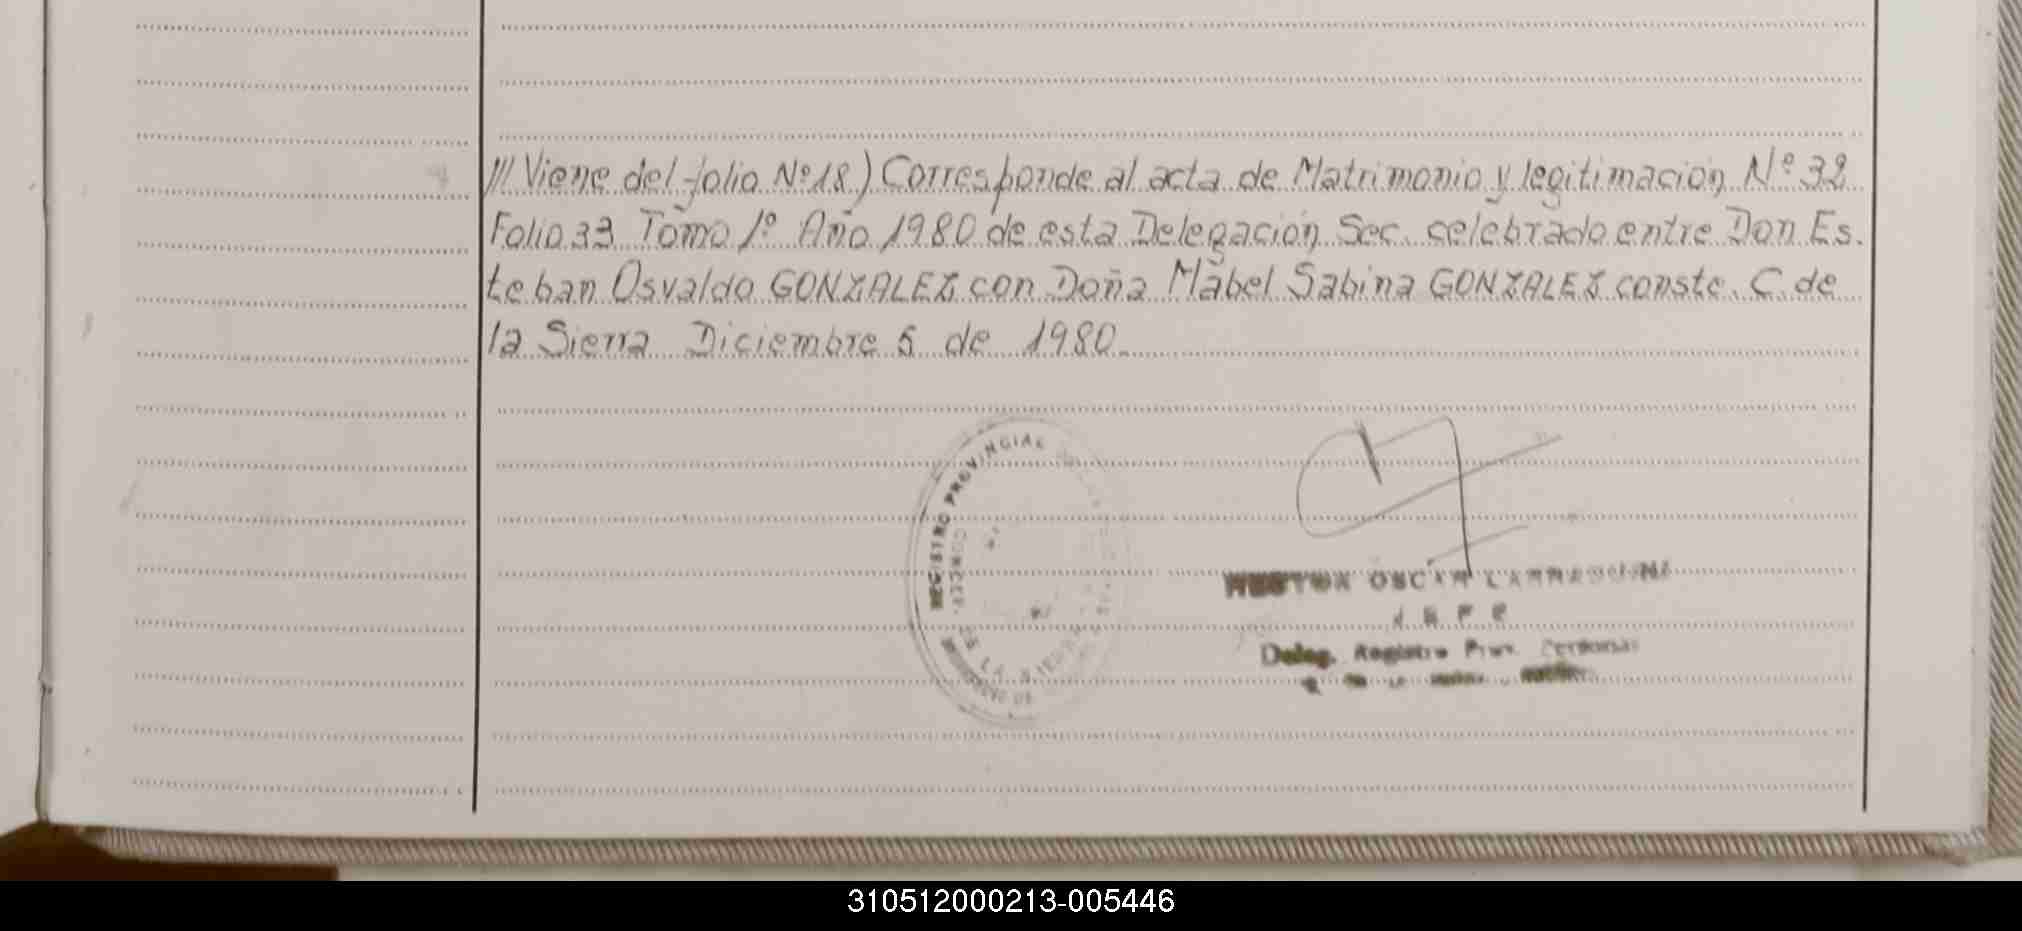 /// Viene del folio Nº 18) Corresponde al acta de Matrimonio y legitimación Nº 32
Folio 33 Tomo 1º Año 1980 de esta Delegación Sec. celebrado entre Don Es.
teban Osvaldo GONZALEZ con Doña Mabel Sabina GONZALEZ conste. C. de
la Sierra Diciembre 5 de 1980.
REGISTRO PROVINCIAL
CONCEP.
DE LA SIERRA
OSCAR
J E F E
Deleg. Registro Prov. Personas
310512000213-005446